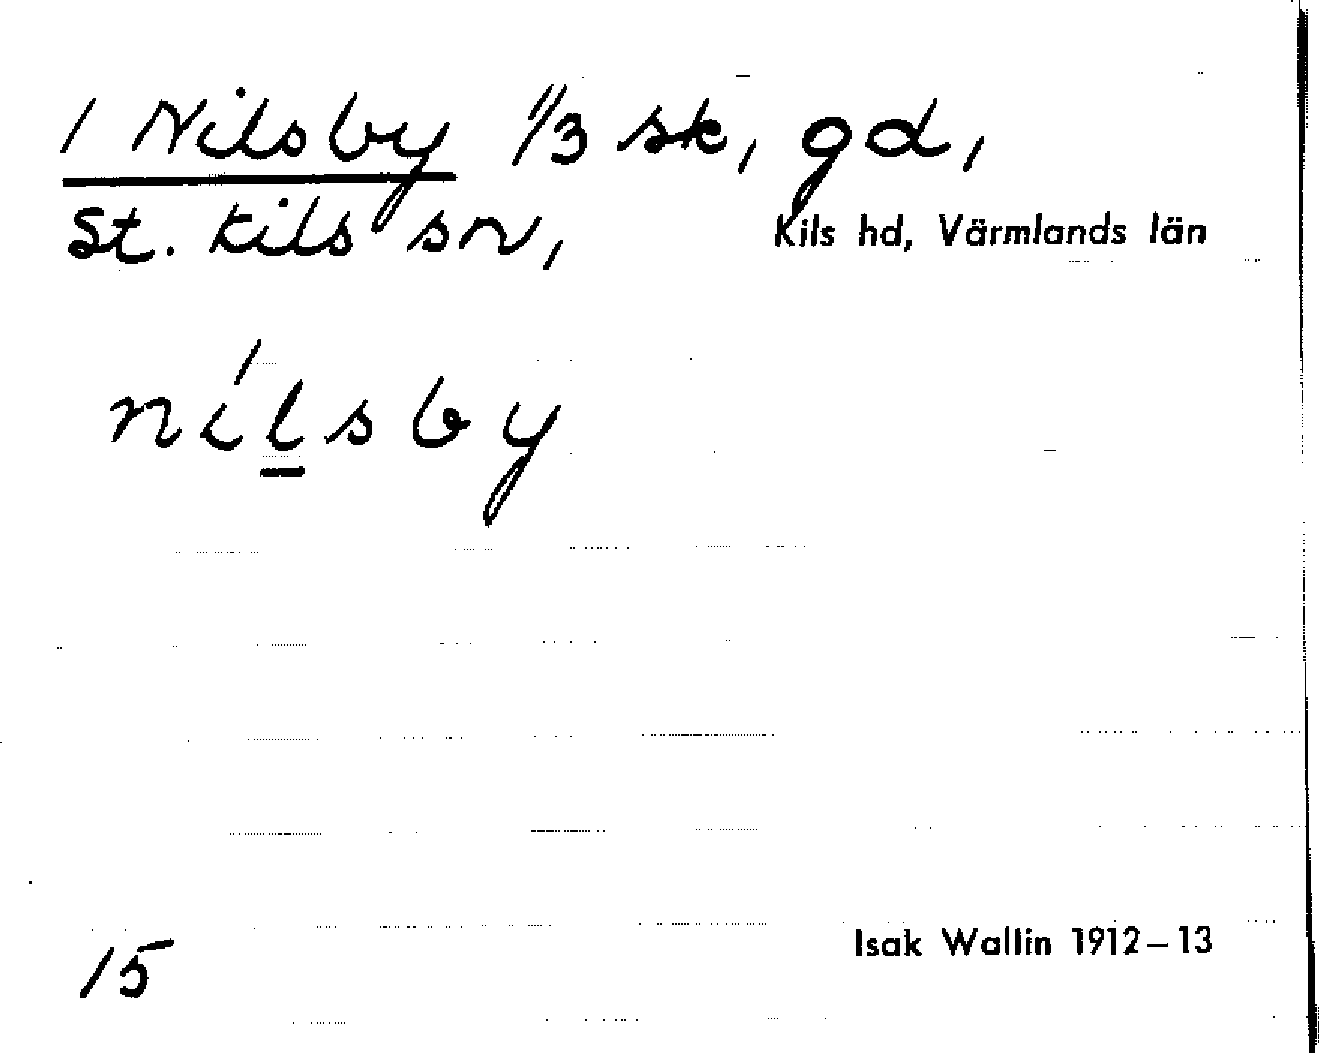 1 Nilsby 1/3 sk, gd,
St. Kils sn, Kils hd, Värmlands län
nílsby
15 Isak Wallin 1912–13